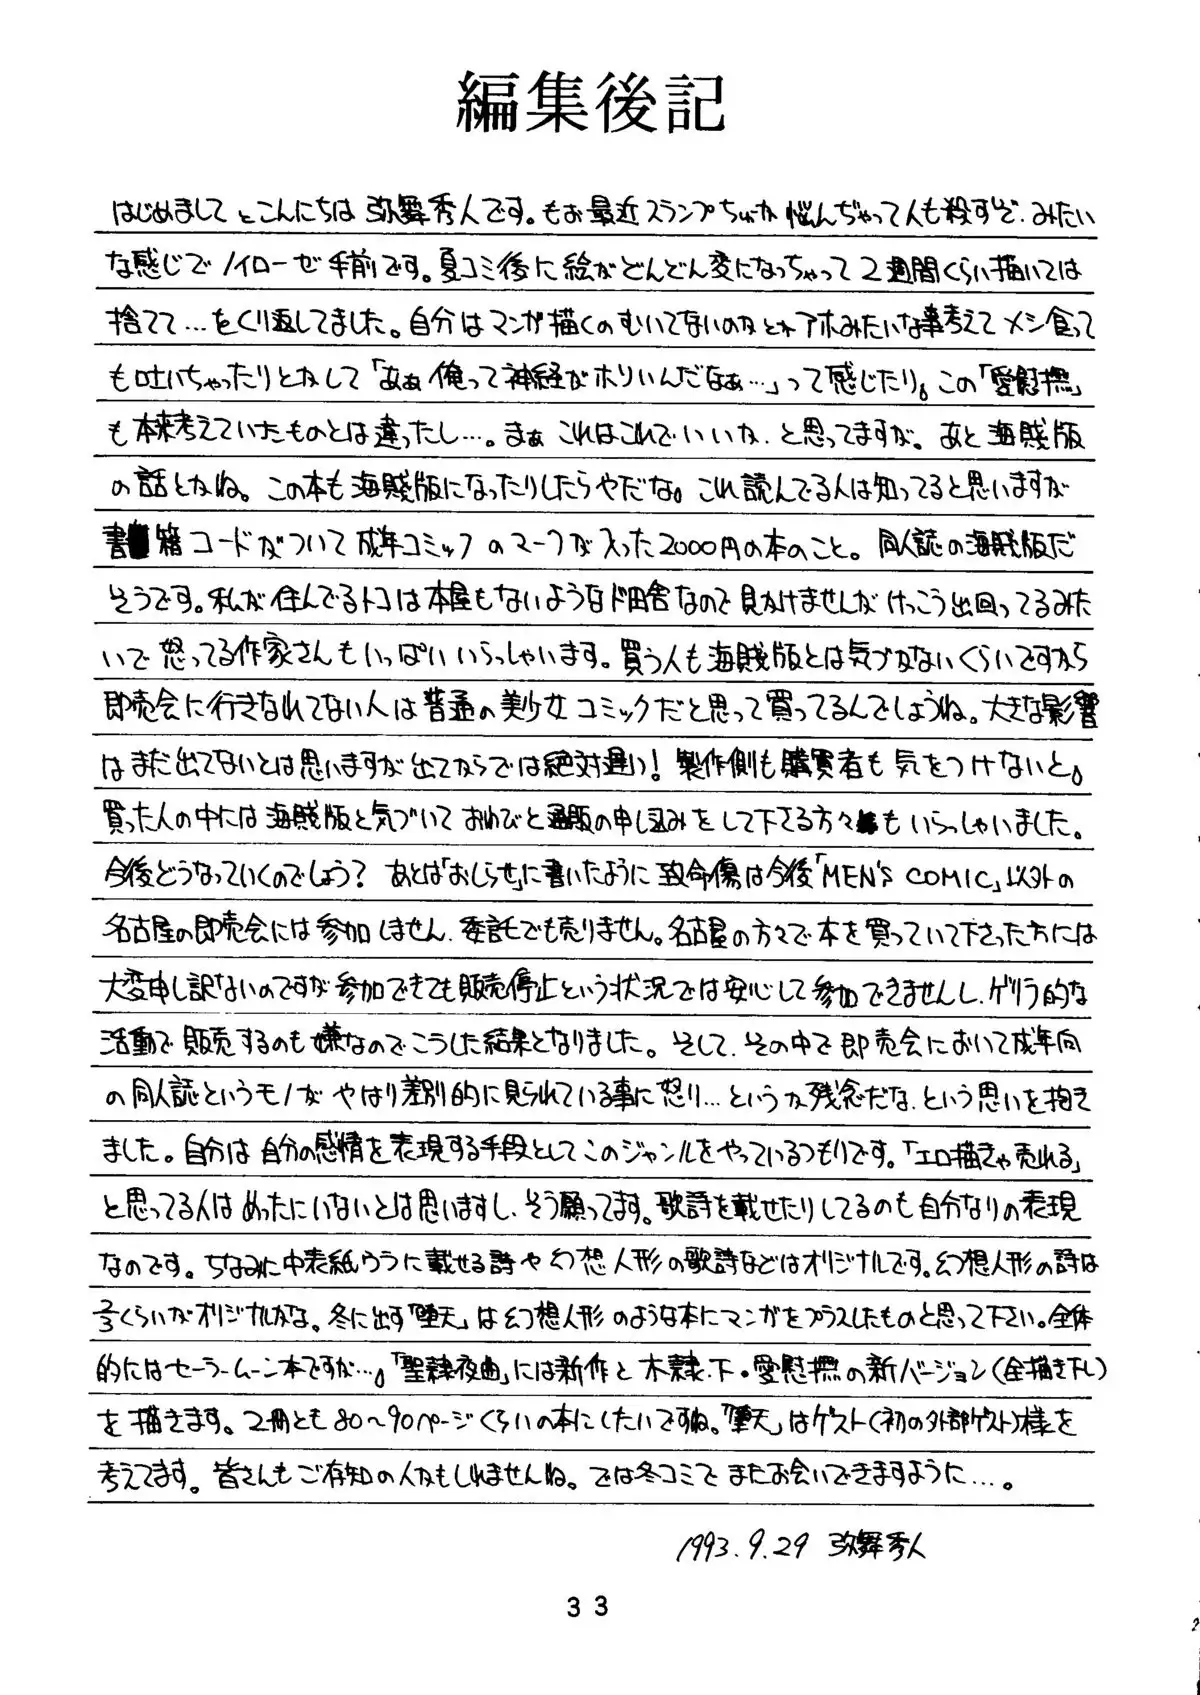 編集後記
はじめまして とこんにちは 弥舞秀人です。もお最近スランプちゅーか 悩んぢゃって人も殺すぞ、みたい
な感じでノイローゼ手前です。夏コミ後に絵がどんどん変になっちゃって2週間くらい描いては
捨てて…をくり返してました。自分はマンガ描くのむいてないのかとかアホみたいな事考えてメシ食って
も吐いちゃったりとかして「あぁ俺って神経がホソいんだなぁ…」って感じたり。この「愛慰撫」
も本来考えていたものとは違ったし…。まぁこれはこれでいいか、と思ってますが。あと海賊版
の話とかね。この本も海賊版になったりしたらやだな。これ読んでる人は知ってると思いますが
書籍コードがついて成年コミックのマークが入った2000円の本のこと。同人誌の海賊版だ
そうです。私が住んでるトコは本屋もないようなド田舎なので見かけませんがけっこう出回ってるみた
いで怒ってる作家さんもいっぱいいらっしゃいます。買う人も海賊版とは気づかないくらいですから
即売会に行きなれてない人は普通の美少女コミックだと思って買ってるんでしょうね。大きな影響
はまだ出てないとは思いますが出てからでは絶対遅い!製作側も購買者も気をつけないと。
買った人の中には海賊版と気づいておわびと通販の申し込みをして下さる方々もいらっしゃいました。
今後どうなっていくのでしょう? あとは「おしらせ」に書いたように致命傷は今後「MEN'S COMIC」以外の
名古屋の即売会には参加しません、委託でも売りません。名古屋の方々で本を買っていて下さった方には
大変申し訳ないのですが参加できても販売停止という状況では安心して参加できませんし、ゲリラ的な
活動で販売するのも嫌なのでこうした結果となりました。そして、その中で即売会において成年向
の同人誌というモノがやはり差別的に見られている事に怒り…というか残念だな、という思いを抱き
ました。自分は自分の感情を表現する手段としてこのジャンルをやっているつもりです。「エロ描きゃ売れる」
と思ってる人はめったにいないとは思いますし、そう願ってます。歌詩を載せたりしてるのも自分なりの表現
なのです。ちなみに中表紙ウラに載せる詩や幻想人形の歌詩などはオリジナルです。幻想人形の詩は
2/3くらいがオリジナルかな。冬に出す「堕天」は幻想人形のような本にマンガをプラスしたものと思って下さい。全体
的にはセーラームーン本ですが…。「聖隷夜曲」には新作と木隷下・愛慰撫の新バージョン(全描き下し)
を描きます。2冊とも80〜90ページくらいの本にしたいですね。「堕天」はゲスト(初の外部ゲスト)様を
考えてます。皆さんもご存知の人かもしれませんね。では冬コミでまたお会いできますように…。
1993.9.29 弥舞秀人
33